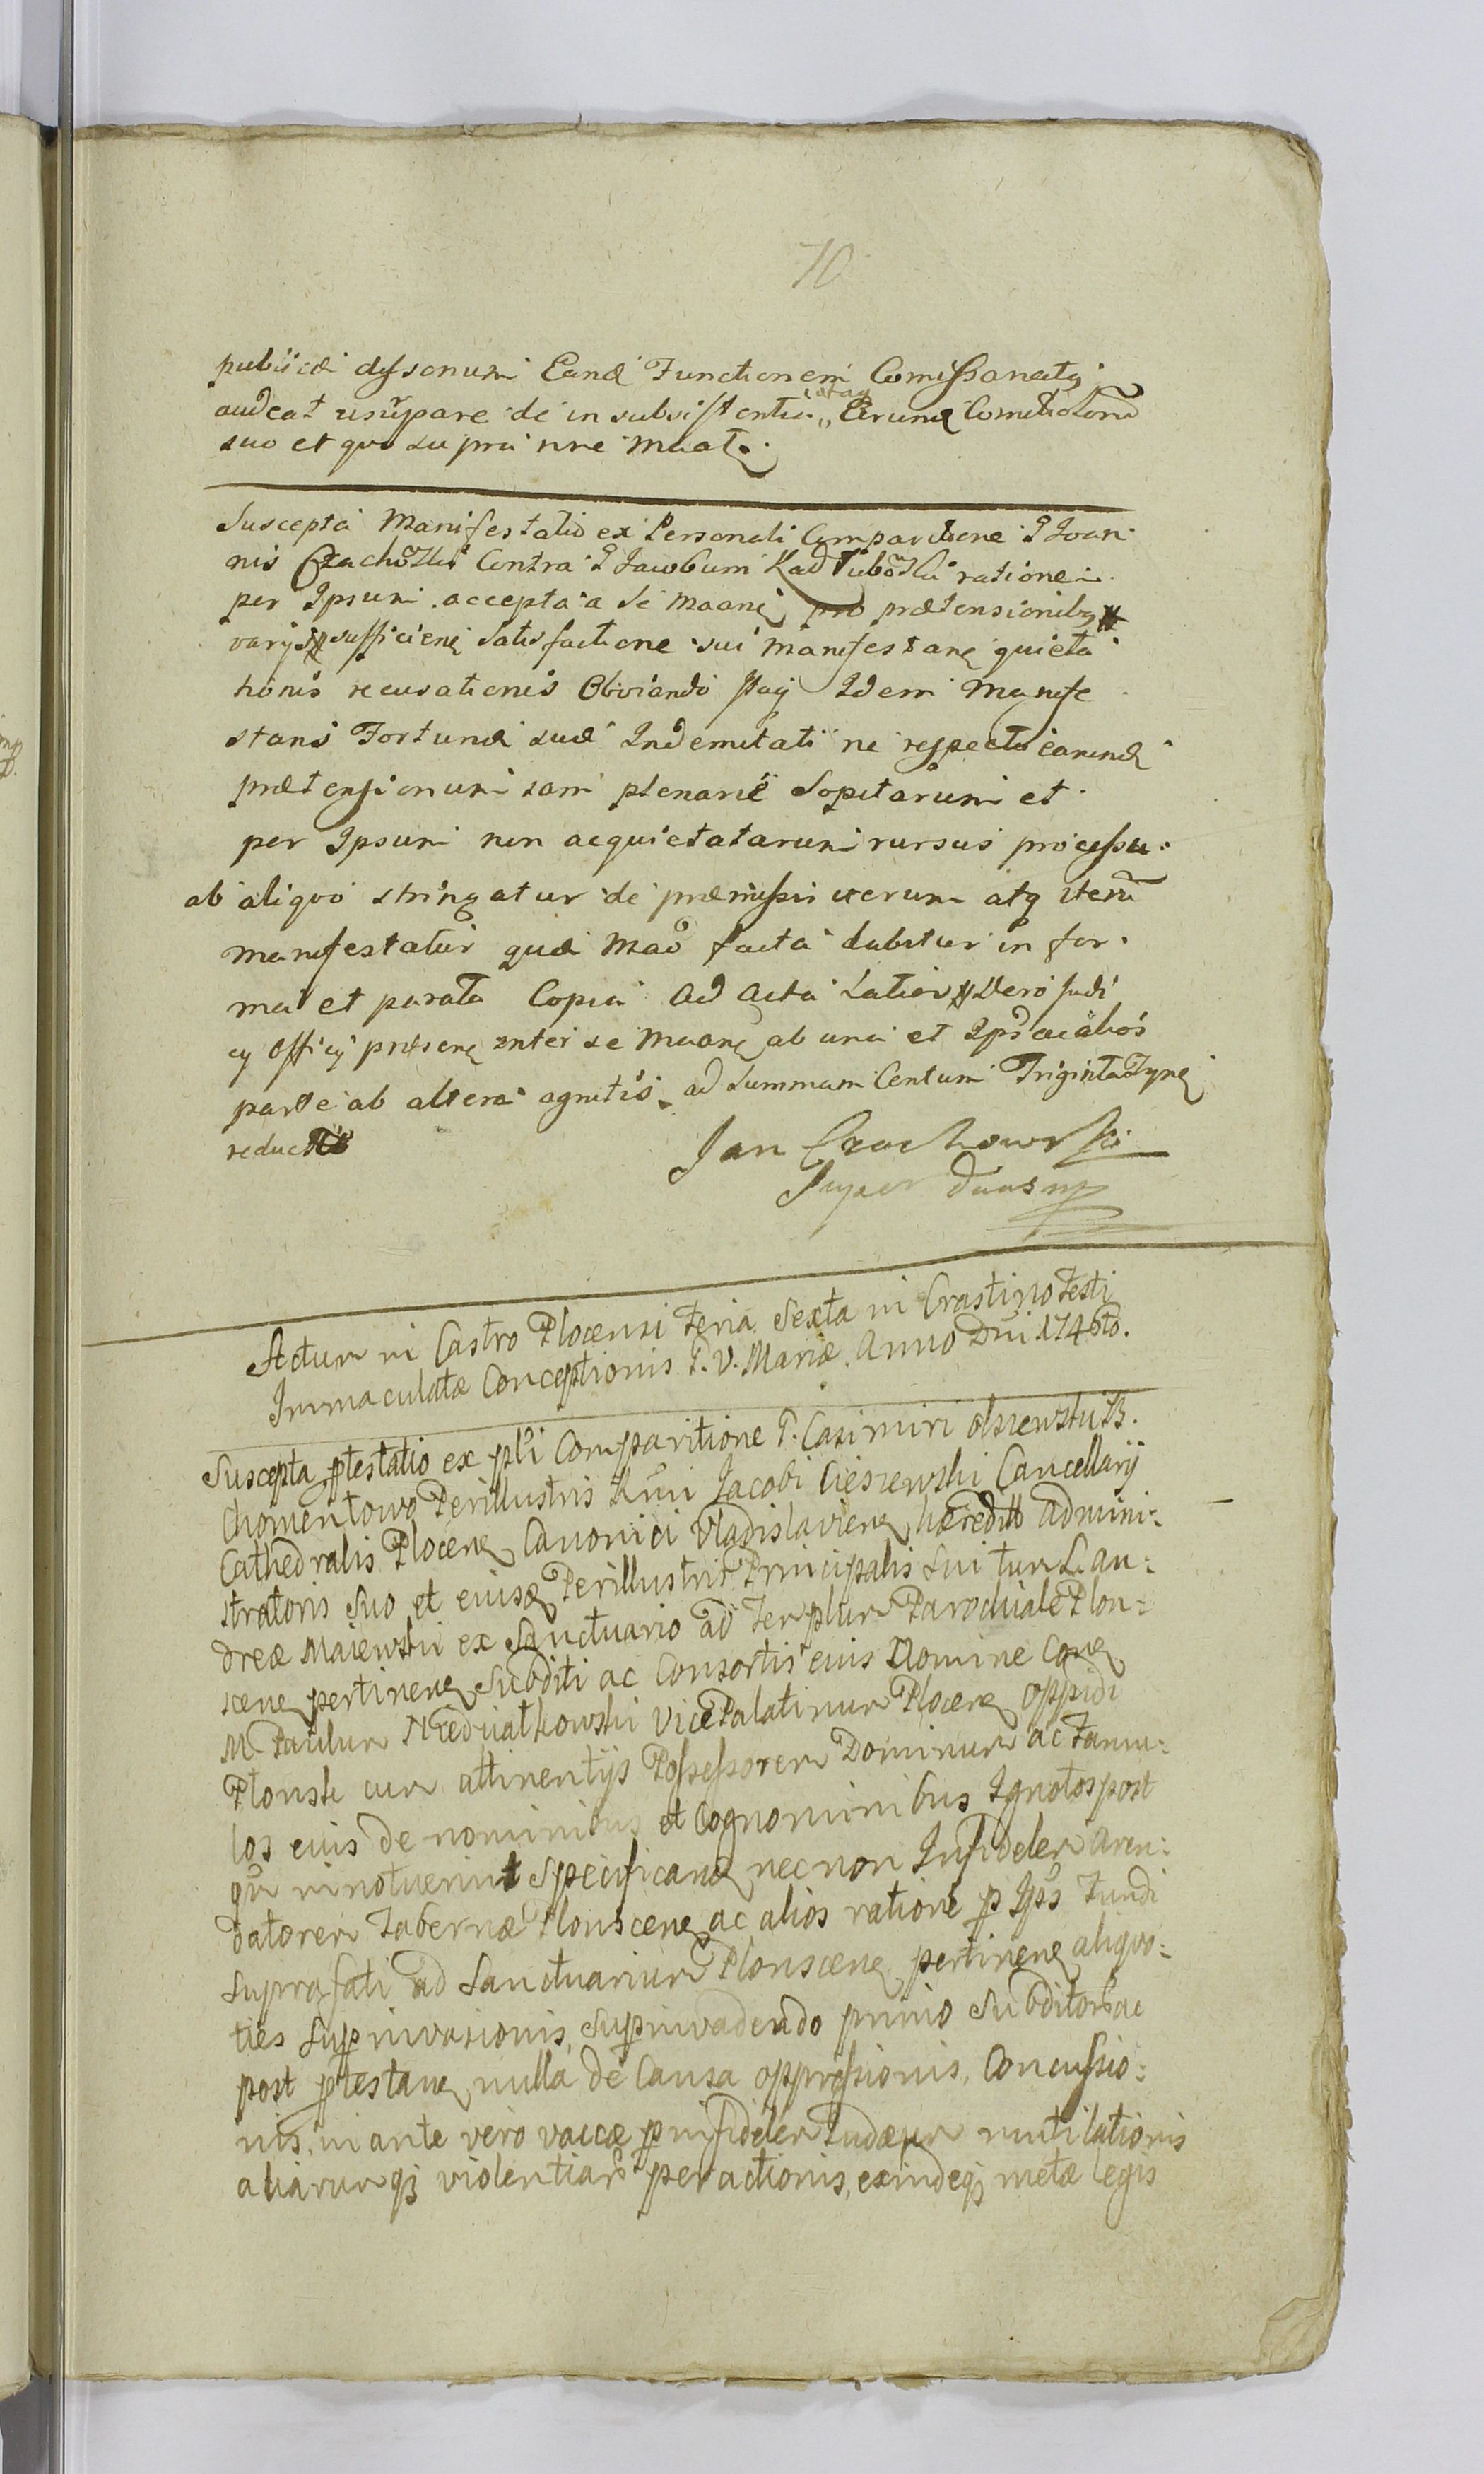 70
publicæ dyssonum Eand Functionem Comissoriatq
audeat usurpare de in subsistentia istaq Eerund Comitiorum
suo et quo supra nne maat.
Suscepta Manifestatio ex Personali Comparitione P Joan
nis Czachowski Contra P Jacobum Kadłubowski ratione
per Ipsum accepta a se maane pro prætensionibq
varys sufficiene Satisfactione sui manifestane quieta
tionis recusationis Obviando Idem Manife
stans Fortunæ suæ Indemnitati ne respectu earund
prætensionum iam plenarie Sopitarum et
per Ipsum non acquietatarum rursus processu
ab aliquo stringatur de præmissis iterum atq iterũ
manifestatur quæ mao facta dabitur in for
ma et parata Copia ad acta Latior Vero Judi
cy Officy præsene inter se maane ab una et Ipsũ ac alios
parte ab altera agnitis ad Summam Centum Triginta Tyne
reductis
Jan Czachowski
super duas mp
Actum in Castro Plocensi Feria Sexta in Crastino Festi
Immaculatæ Conceptionis B. V. Mariæ Anno Dni 1746to.
Suscepta ptestatio ex pli Comparitione P. Casimiri olszewski B.
Chomentowo Perillustris Rñni Jacobi Cieszewski Cancellarij
Cathedralis Plocene Canonici Vladislaviene hæredit Admini:
stratoris suo et eiusq Perillustris Principalis sui tum L. An:
dreæ Maiewski ex Sanctuario ad Templum Parochiale Plon:
scene pertinene Subditi ac Consortis eius Nomine Cone
M. Paulum Niedziałkowski Vice Palatinum Plocene Oppidi
Plonsk cum attinentijs Possessorem Dominum ac Famu:
los eius de nominibus et Cognominibus Ignotos post
qũ innotuerint specificane necnon Infideler Aren:
datorem Tabernæ Plonscene ac alios ratione p Ips Fundi
suprafati ad Sanctuarium Plonscene pertinene aliquo:
ties supinvasionis, supinvadendo primo Subditos ac
post ptestane nulla de Causa oppressionis, Concussio:
nis, in ante vero vaccæ p infidelem Judæum mutilationis
aliarumqȝ violentiarũ peractionis, exindeqȝ metæ legis